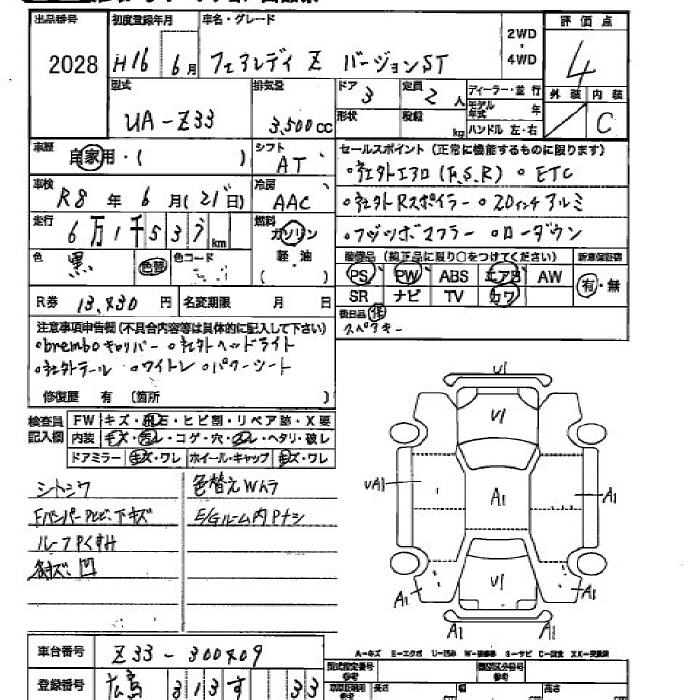 出品番号 初度登録年月 車名・グレード 評価点
2028 H16 6月 フェアレディ Z バージョンST 2WD・4WD 4
型式 排気量 ドア 定員 ディーラー・並行 外装 内装
UA-Z33 3,500cc 3 2人 モデル年式 年 C
形状 積載 kg ハンドル 左・右
車歴 自家用・( ) シフト AT セールスポイント(正常に機能するものに限ります)
・社外エアロ(F,S,R) ・ETC
車検 R8年 6月(21日) 冷房 AAC
・社外Rスポイラー ・20インチアルミ
走行 6万1千537km 燃料 ガソリン
・フジツボマフラー ・ローダウン
色 黒 色替 色コード 軽油
( )
装備品(純正品に限り○をつけてください) 新車保証書
PS PW ABS エアB AW 有・無
SR ナビ TV カワ
R券 13,830円 名変期限 月 日
後日品 保
スペアキー
注意事項申告欄(不具合内容等は具体的に記入して下さい)
・bremboキャリパー ・社外ヘッドライト
・社外テール ・ワイトレ ・パワーシート
修復歴 有 (箇所 )
検査員記入欄 FW キズ・飛石・ヒビ割・リペア跡・X要
内装 キズ・汚れ・コゲ・穴・スレ・ヘタリ・破レ
ドアミラー キズ・ワレ ホイール・キャップ キズ・ワレ
シートシワ 色替えWムラ
Fバンパー Pヒビ、下キズ E/Gルーム内Pナシ
ルーフPくすみ
凹
U1
U1
UA1 A1 A1
U1
A1 A1
A1 A1
車台番号 Z33-300809
A-キズ E-エクボ U-凹み W-補修跡 S-サビ C-腐食 XX-交換済
登録番号 広島 313 す 33
型式指定番号 参考 類別区分番号 参考
長さ 幅 高さ